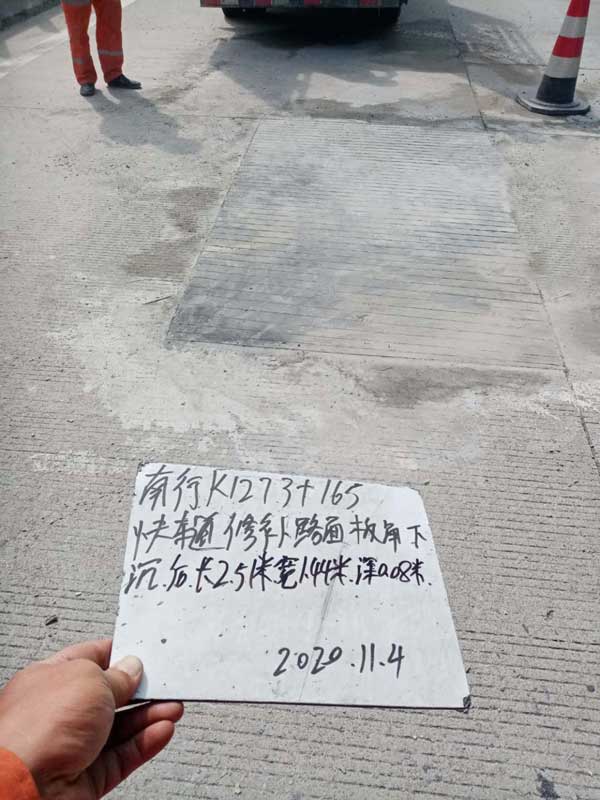 南行K1273+165
快车道修补路面板角下
沉.后.长2.51米宽1.44米.深0.08米.
2020.11.4